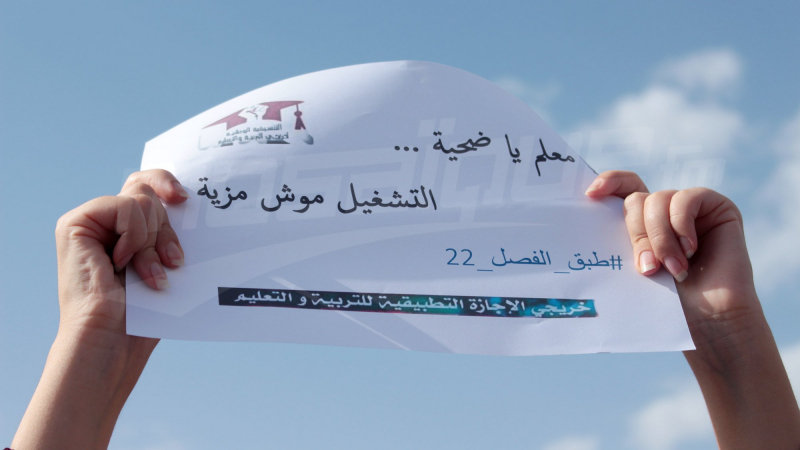 التنسيقية الوطنية
معلم يا ضحية ...
التشغيل موش مزية
#طبق_الفصل_22
خريجي الإجازة التطبيقية للتربية و التعليم